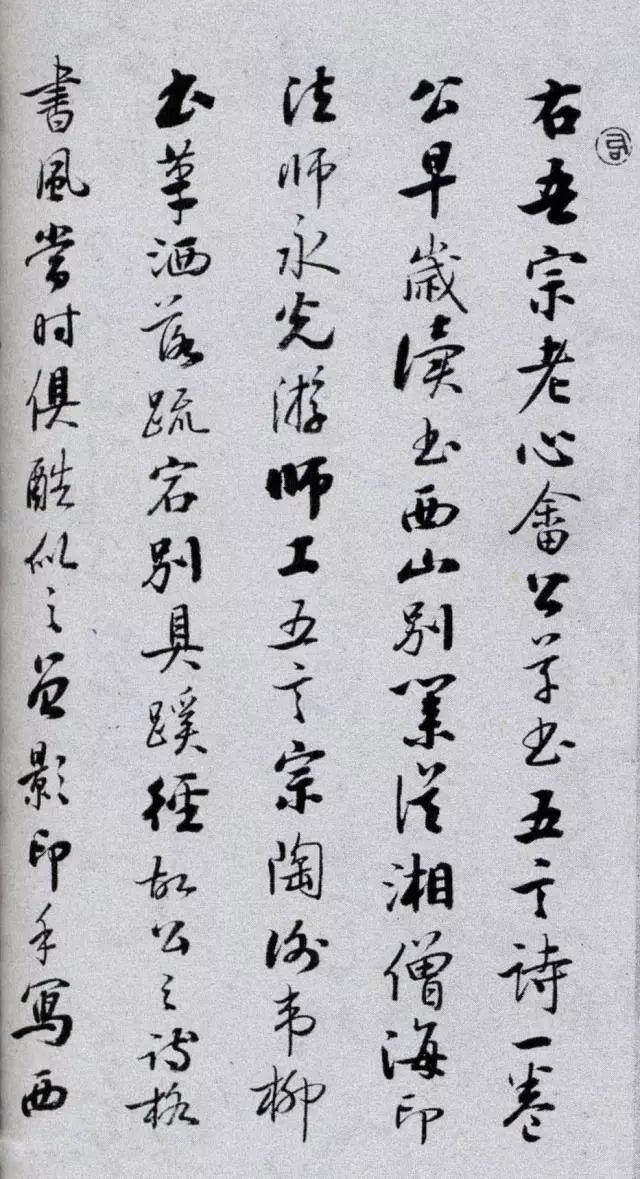 右吾宗老心畬公草書五言詩一卷
公早歲讀書西山別業從湘僧海印
法師永光游師工五言宗陶謝韋柳
書筆洒落疏宕別具蹊徑故公之詩格
書風當時俱酷似之曾影印手寫西